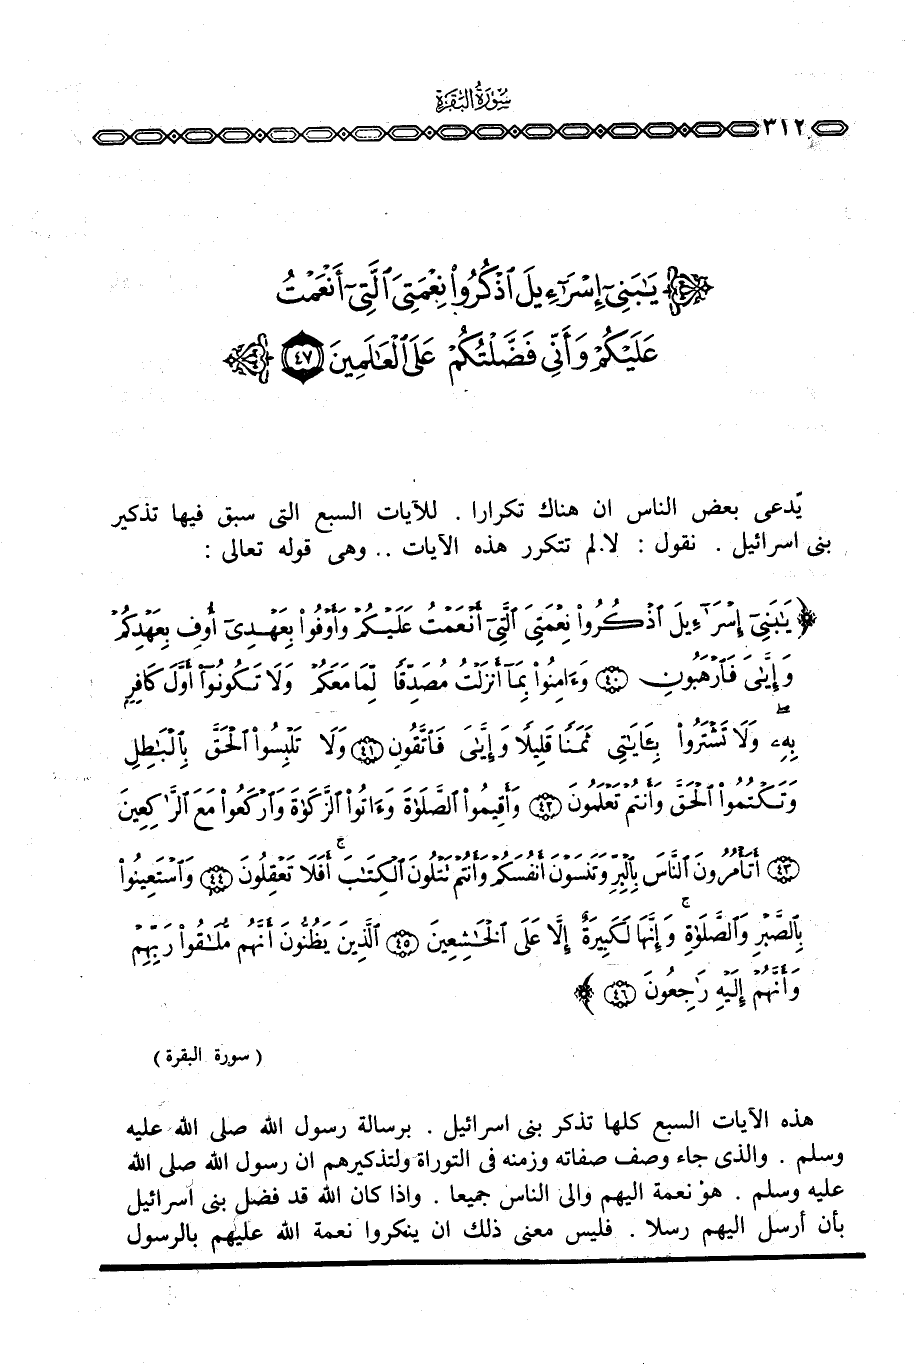 سورة البقرة
٣١٢
يَٰبَنِىٓ إِسْرَٰٓءِيلَ ٱذْكُرُوا۟ نِعْمَتِىَ ٱلَّتِىٓ أَنْعَمْتُ
عَلَيْكُمْ وَأَنِّى فَضَّلْتُكُمْ عَلَى ٱلْعَٰلَمِينَ ٤٧
يدّعى بعض الناس ان هناك تكرارا . للآيات السبع التى سبق فيها تذكير
بنى اسرائيل . نقول : لا.لم تتكرر هذه الآيات .. وهى قوله تعالى :
﴿ يَٰبَنِىٓ إِسْرَٰٓءِيلَ ٱذْكُرُوا۟ نِعْمَتِىَ ٱلَّتِىٓ أَنْعَمْتُ عَلَيْكُمْ وَأَوْفُوا۟ بِعَهْدِىٓ أُوفِ بِعَهْدِكُمْ
وَإِيَّٰىَ فَٱرْهَبُونِ ٤٠ وَءَامِنُوا۟ بِمَآ أَنزَلْتُ مُصَدِّقًا لِّمَا مَعَكُمْ وَلَا تَكُونُوٓا۟ أَوَّلَ كَافِرٍۭ
بِهِۦ وَلَا تَشْتَرُوا۟ بِـَٔايَٰتِى ثَمَنًا قَلِيلًا وَإِيَّٰىَ فَٱتَّقُونِ ٤١ وَلَا تَلْبِسُوا۟ ٱلْحَقَّ بِٱلْبَٰطِلِ
وَتَكْتُمُوا۟ ٱلْحَقَّ وَأَنتُمْ تَعْلَمُونَ ٤٢ وَأَقِيمُوا۟ ٱلصَّلَوٰةَ وَءَاتُوا۟ ٱلزَّكَوٰةَ وَٱرْكَعُوا۟ مَعَ ٱلرَّٰكِعِينَ
٤٣ أَتَأْمُرُونَ ٱلنَّاسَ بِٱلْبِرِّ وَتَنسَوْنَ أَنفُسَكُمْ وَأَنتُمْ تَتْلُونَ ٱلْكِتَٰبَ ۚ أَفَلَا تَعْقِلُونَ ٤٤ وَٱسْتَعِينُوا۟
بِٱلصَّبْرِ وَٱلصَّلَوٰةِ ۚ وَإِنَّهَا لَكَبِيرَةٌ إِلَّا عَلَى ٱلْخَٰشِعِينَ ٤٥ ٱلَّذِينَ يَظُنُّونَ أَنَّهُم مُّلَٰقُوا۟ رَبِّهِمْ
وَأَنَّهُمْ إِلَيْهِ رَٰجِعُونَ ٤٦ ﴾
( سورة البقرة )
هذه الآيات السبع كلها تذكر بنى اسرائيل . برسالة رسول الله صلى الله عليه
وسلم . والذى جاء وصف صفاته وزمنه فى التوراة ولتذكيرهم ان رسول الله صلى الله
عليه وسلم . هو نعمة اليهم والى الناس جميعا . واذا كان الله قد فضل بنى اسرائيل
بأن أرسل اليهم رسلا . فليس معنى ذلك ان ينكروا نعمة الله عليهم بالرسول